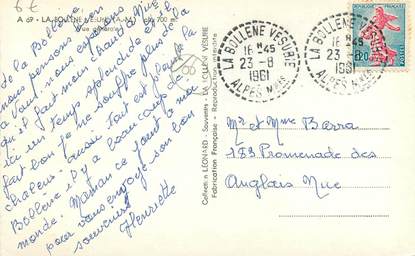 6€
A 69 - LA BOLLÈNE VÉSUBIE (A.-M.) alt. 700 m.
Vue générale
de la Bollène
nous pensons
à vous. nous espérons
qu'il fait
ici un temps splendide
fait bon je ne souffre plus de la
chaleur. aussi
Bollène il y a beaucoup de
monde. Maman se joint à moi
pour vous envoyer son bon
souvenir
Henriette
Collection LÉONARD - Souvenirs - LA BOLLÈNE VÉSUBIE
Fabrication Française - Reproduction interdite
LA BOLLENE VESUBIE
16H45
23-8
1961
ALPES MMES
LA BOLLENE VESUBIE
16H45
23-8
1961
ALPES MMES
0,20
Mr et Mme Barra
153 Promenade des
Anglais Nice